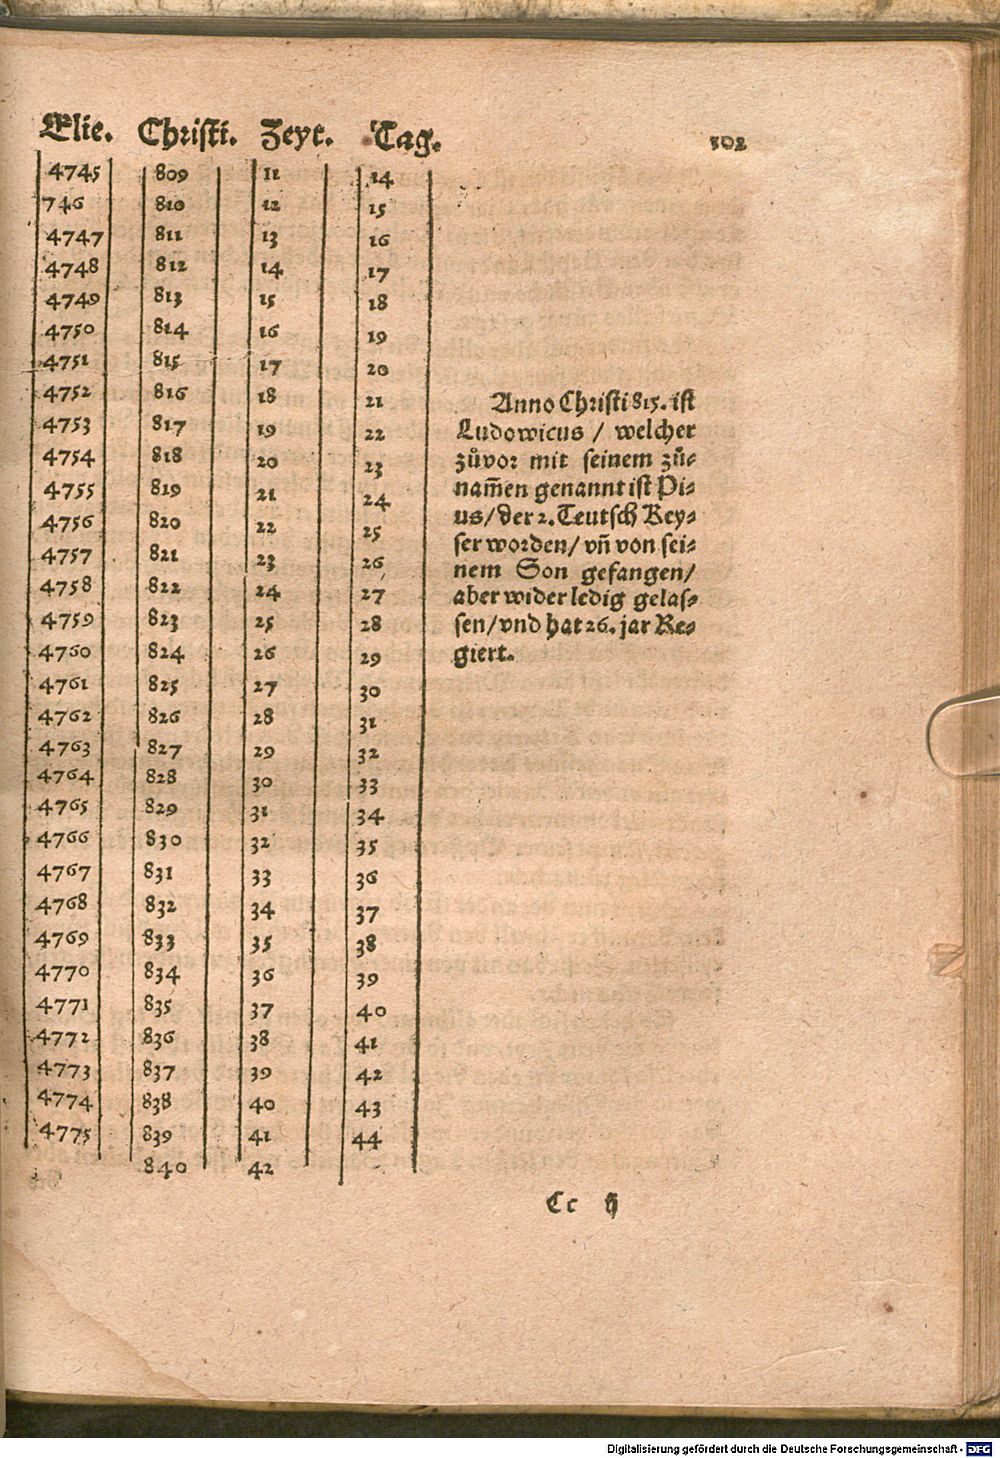 Elie. Christi. Zeyt. Tag. 102
4745 809 11 14
746 810 12 15
4747 811 13 16
4748 812 14 17
4749 813 15 18
4750 814 16 19
4751 815 17 20
4752 816 18 21
4753 817 19 22
4754 818 20 23
4755 819 21 24
4756 820 22 25
4757 821 23 26
4758 822 24 27
4759 823 25 28
4760 824 26 29
4761 825 27 30
4762 826 28 31
4763 827 29 32
4764 828 30 33
4765 829 31 34
4766 830 32 35
4767 831 33 36
4768 832 34 37
4769 833 35 38
4770 834 36 39
4771 835 37 40
4772 836 38 41
4773 837 39 42
4774 838 40 43
4775 839 41 44
840 42
Anno Christi 815. ist
Ludowicus / welcher
zůvor mit seinem zů-
nam̃en genannt ist Pi-
us/ der 2. Teutsch Key-
ser worden/ vn̄ von sei-
nem Son gefangen/
aber wider ledig gelas-
sen/ vnd hat 26. jar Re-
giert.
Cc ij
Digitalisierung gefördert durch die Deutsche Forschungsgemeinschaft - DFG